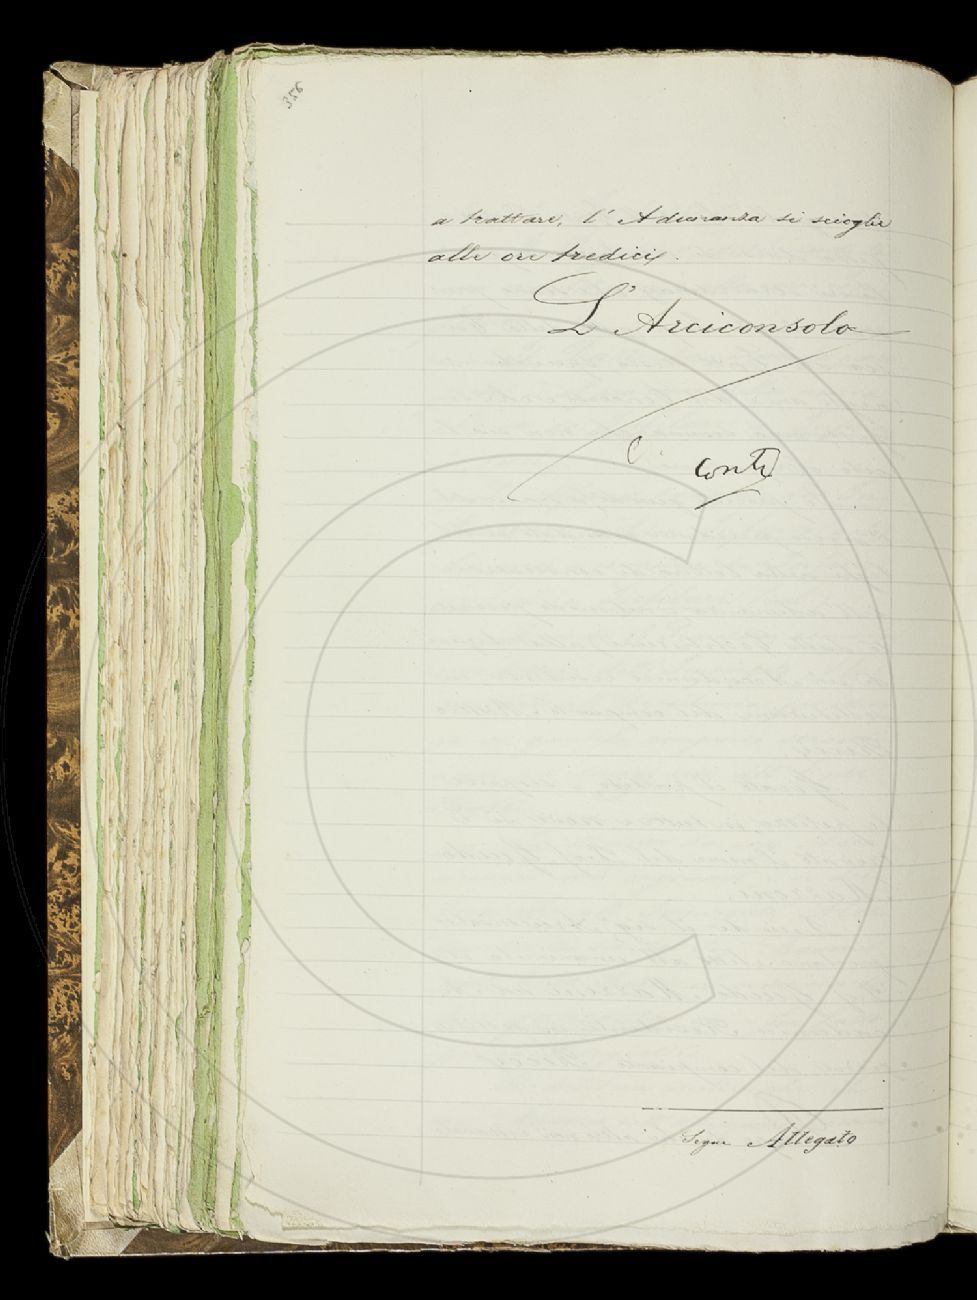 356
a trattare, l'Adunanza si scioglie
alle ore tredici.
L'Arciconsolo
Conti
Segue Allegato